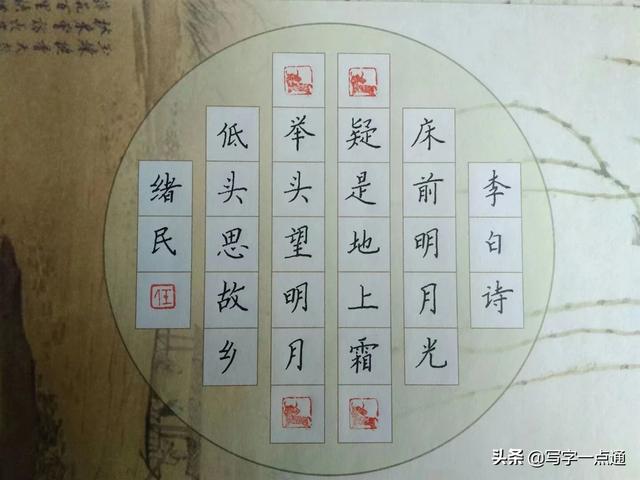 李白诗
床前明月光
疑是地上霜
举头望明月
低头思故乡
绪民
任
头条 @写字一点通